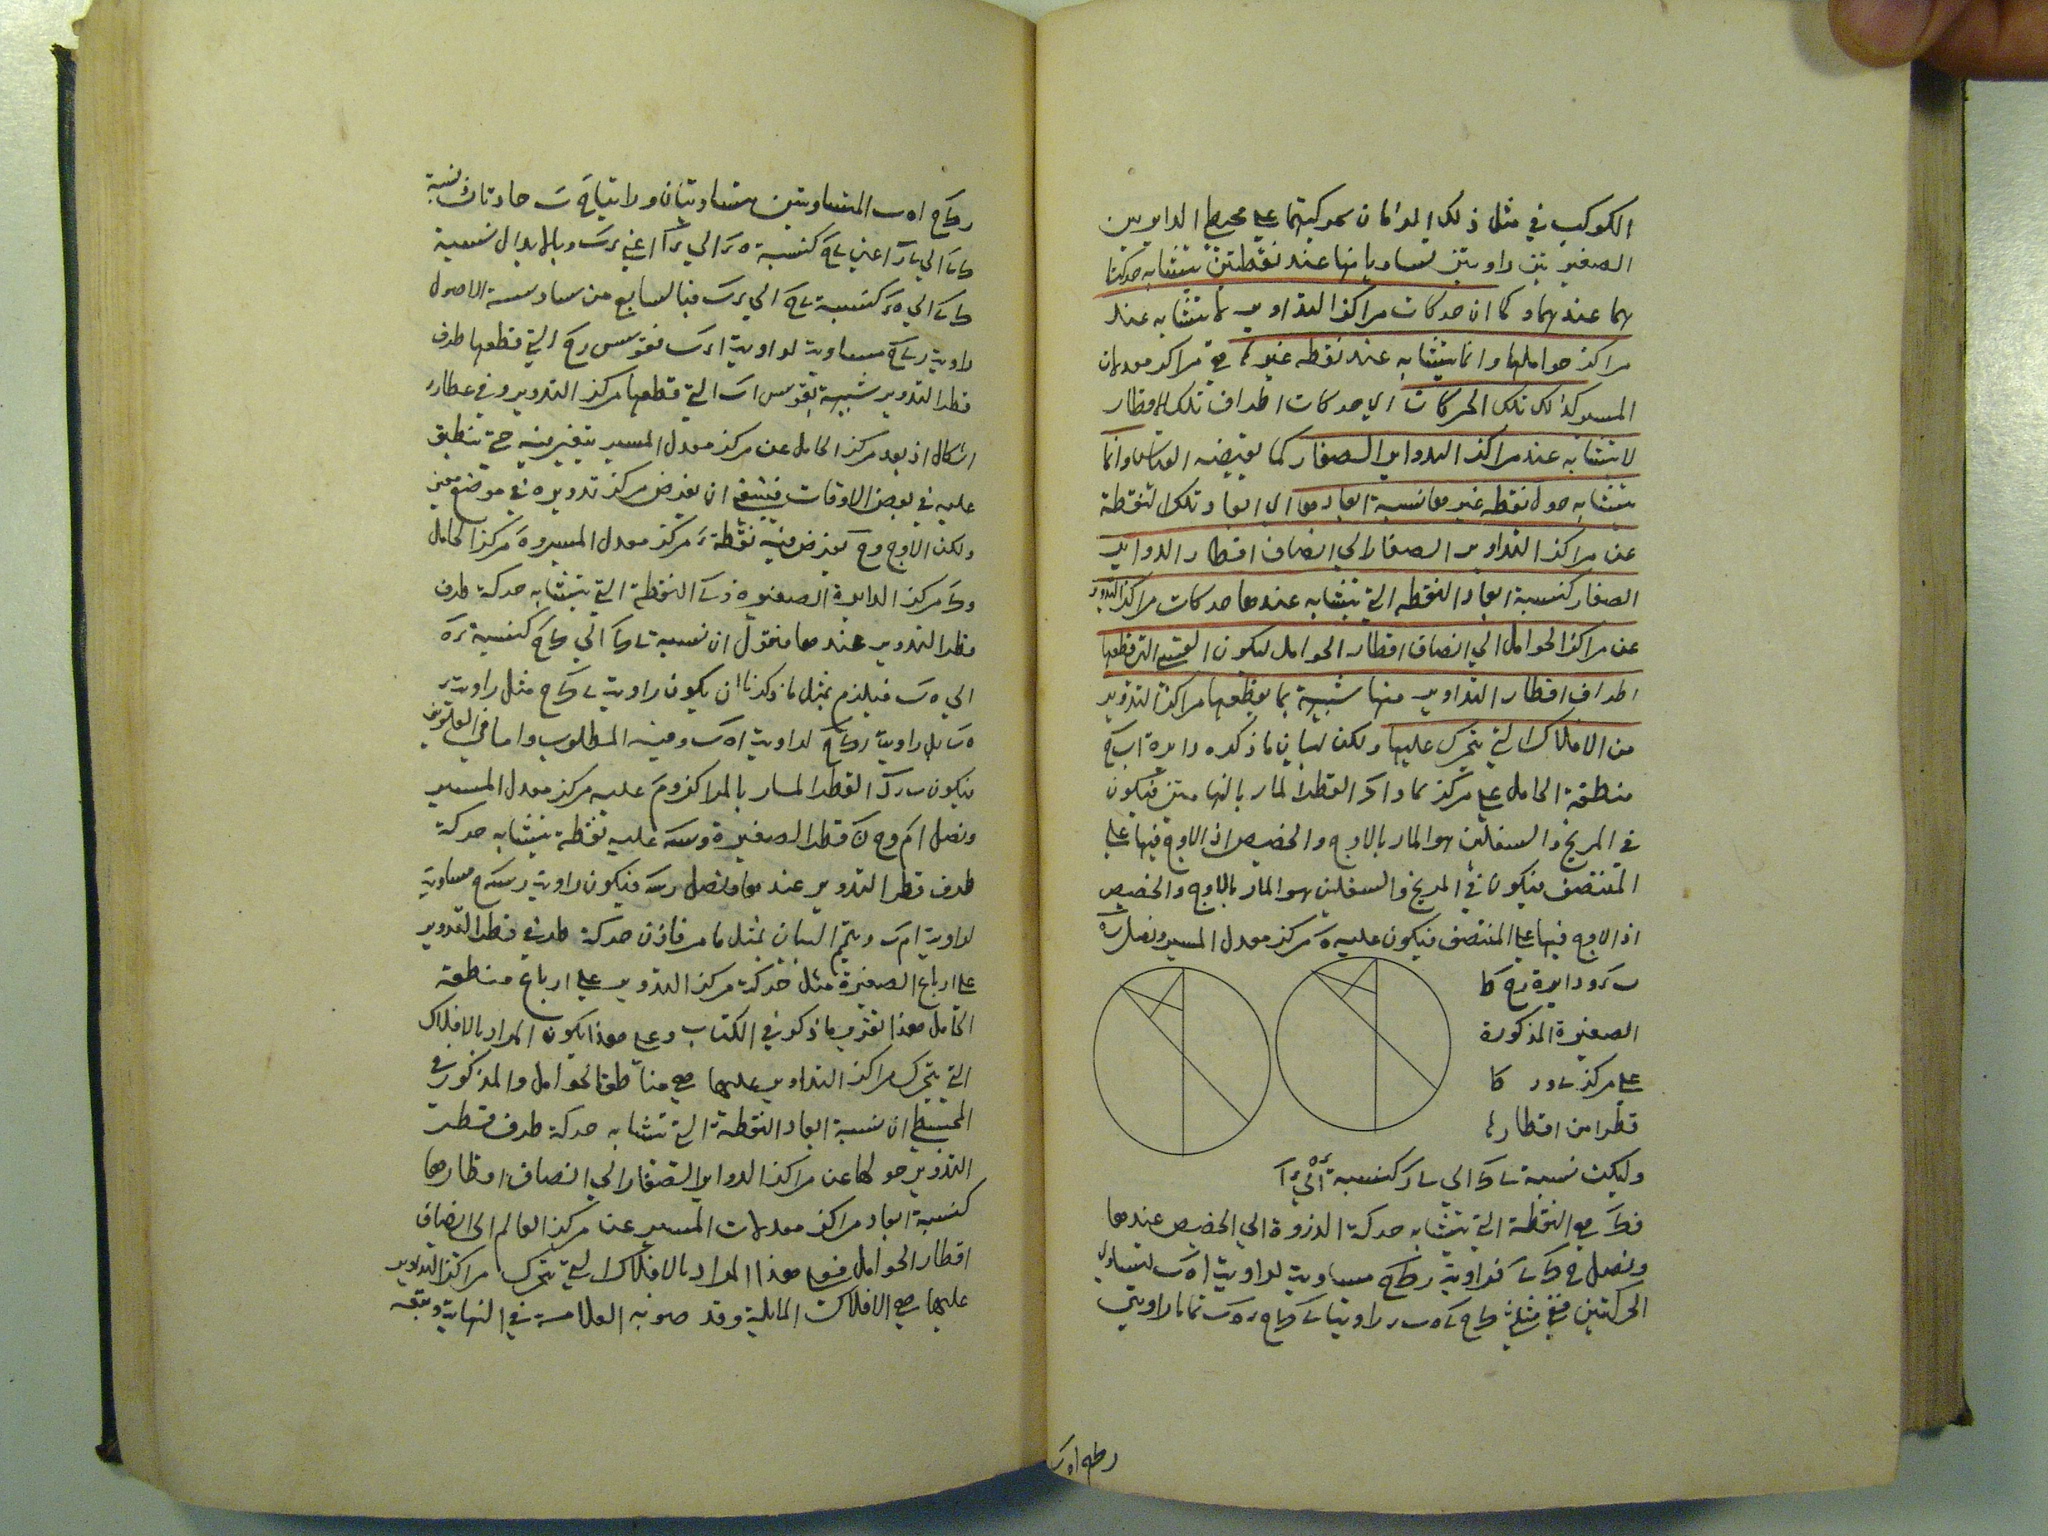 الكوكب في مثل ذلك المدار لان حركيتهما على محيط الدايرين
الصغيرتين زاويتين تساويانها عند نقطتين يتشابه حركتا
هما عندهما وكما ان حركات مراكز التداوير لا يتشابه عند
مراكز حواملها وانما يتشابه عند نقطه غيرها هي مراكز معدلات
المسير كذلك تلك الحركات اي حركات اطراف تلك الاقطار
لا يتشابه عند مراكز الدواير الصغار كما يقتضيه القياس وانما
يتشابه حول نقطه غيرها نسبة ابعادها اي ابعاد تلك النقطة
عن مراكز التداوير الصغار الي انصاف اقطار الدواير
الصغار كنسبة ابعاد النقطه التي يتشابه عندها حركات مراكز التدوير
عن مراكز الحوامل الي انصاف اقطار الحوامل ليكون القسي التي قطعها
اطراف اقطار التداوير منها شبيهة بما يقطعها مراكز التدوير
من الافلاك التي يتحرك عليها ولكن لبيان ما ذكره دايرة اب ج
منطقة الحامل على مركز ما واد القطر المار بالنهايتين فيكون
في المريخ والسفليين هو المار بالاوج والحضيض اذ الاوج فيها على
المنتصف فيكون في المريخ والسفليين هو المار بالاوج والحضيض
اذ الاوج فيها على المنتصف فيكون عليه ه مركز معدل المسير ونصل
ب ز ودايرة رح كا
الصغيرة المذكورة
على مركز ى ور كا
قطرا من اقطارها
وليكن نسبة ى ك الي ى ر كنسبة
فك هي النقطة التي يتشابه حركة الذروة الي الحضيض عندها
ونصل ح ك ى فزاوية ر ك ح مساوية لزاوية ا ه ب لتساوي
الحركتين ففي مثلثي ك ح ى ه ب ر زاويتا ى ك ح ر ه ب تماما زاويتي
رطح اه ب
ر ك ح ا ه ب المتساويتين متساويتان وزاويتا ح ب حادتان ونسبة
ك ى الي ى ر اعني ى ح كنسبة ه ز الي ز ا اعني ز ب وبالابدال نسبة
ك ى الي ه ز كنسبة ى ح الي ز ب فبالسابع من سادسة الاصول
زاوية ر ى ح مساوية لزاوية ا ز ب فقوس ر ح التي قطعها طرف
قطر التدوير شبيهة بقوس ا ب التي قطعها مركز التدوير وفي عطارد
اشكال اذ بعد مركز الحامل عن مركز معدل المسير يتغير فيه حتى ينطبق
عليه في بعض الاوقات فينبغي ان يفرض مركز تدويره في موضع معين
ولكن الاوج وح يفرض فيه نقطة ز مركز معدل المسير و ه مركز الحامل
و ك مركز الدايرة الصغيرة و ى النقطة التي يتشابه حركة طرف
قطر التدوير عندها فنقول ان نسبة ى ك الي ك ح كنسبة ز ه
الي ه ب فيلزم بمثل ما ذكرنا ان يكون زاوية ى ك ح مثل زاوية ز
ه ب بل زاوية ر ك ح لزاوية ا ه ب وفيه المطلوب واما في العلويين
فيكون ب ز د القطر المار بالمراكز و م عليه مركز معدل المسير
ونصل ا م و ح ن قطر الصغيرة و س عليه نقطة يتشابه حركة
طرف قطر التدوير عندها ونصل ر س فيكون زاوية ر س ح مساوية
لزاوية ا م ب ويتم البيان بمثل ما مر فاذن حركة طرفي قطر التدوير
على ارباع الصغيرة مثل حركة مركز التدوير على ارباع منطقة
الحامل هذا تقريب ما ذكر في الكتاب وعلى هذا يكون المراد بالافلاك
التي يتحرك مراكز التداوير عليها هي مناطق الحوامل والمذكور في
المجسطي ان نسبة ابعاد النقطة التي تتشابه حركة طرف قطر
التدوير حولها عن مراكز الدواير الصغار الي انصاف اقطارها
كنسبة ابعاد مراكز معدلات المسير عن مركز العالم الى انصاف
اقطار الحوامل فعلى هذا المراد بالافلاك التي يتحرك مراكز التداوير
عليها هي الافلاك المائلة وقد صوبه العلامة في النهاية وتبعه